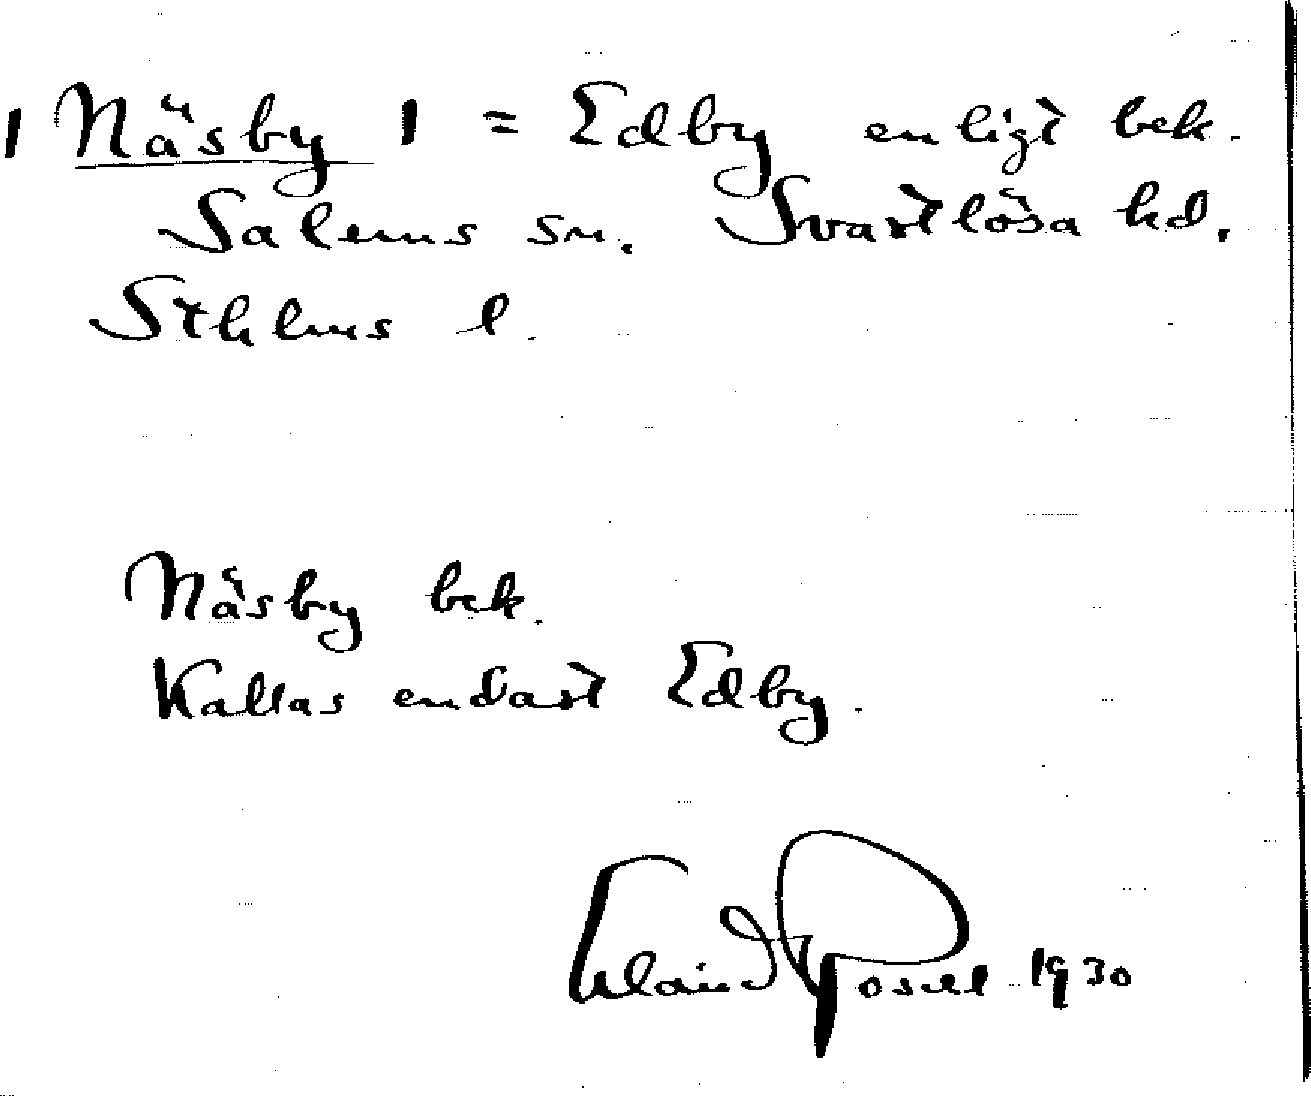 1 Näsby 1 = Edby enligt bek.
Salems sn. Svartlösa hd.
Sthlms l.
Näsby bek.
Kallas endast Edby.
Erland Rosell 1930